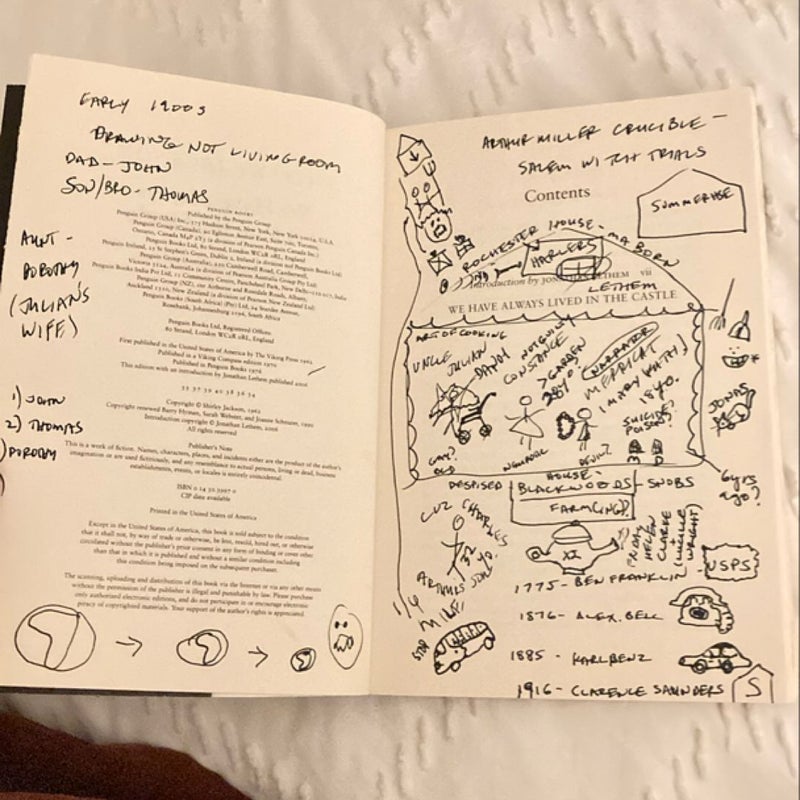 EARLY 1900S
DRAWING NOT LIVING ROOM
DAD - JOHN
SON/BRO - THOMAS
AUNT -
DOROTHY
(JULIAN'S
WIFE)
1) JOHN
2) THOMAS
) DOROTHY
PENGUIN BOOKS
Published by the Penguin Group
Penguin Group (USA) Inc., 375 Hudson Street, New York, New York 10014, U.S.A.
Penguin Group (Canada), 90 Eglinton Avenue East, Suite 700, Toronto,
Ontario, Canada M4P 2Y3 (a division of Pearson Penguin Canada Inc.)
Penguin Books Ltd, 80 Strand, London WC2R 0RL, England
Penguin Ireland, 25 St Stephen's Green, Dublin 2, Ireland (a division of Penguin Books Ltd)
Penguin Group (Australia), 250 Camberwell Road, Camberwell,
Victoria 3124, Australia (a division of Pearson Australia Group Pty Ltd)
Penguin Books India Pvt Ltd, 11 Community Centre, Panchsheel Park, New Delhi - 110 017, India
Penguin Group (NZ), Rosedale Roads, Albany,
Auckland 1310, New Zealand (a division of Pearson New Zealand Ltd)
Penguin Books (South Africa) (Pty) Ltd, 24 Sturdee Avenue,
Rosebank, Johannesburg 2196, South Africa
Penguin Books Ltd, Registered Offices:
80 Strand, London WC2R 0RL, England
First published in the United States of America by The Viking Press 1962
Published in a Viking Compass edition
Published in Penguin Books
This edition with an introduction by Jonathan Lethem published 2006
Copyright © Shirley Jackson, 1962
Copyright renewed Barry Hyman, Sarah Webster, and Joanne Schnurer, 1990
Introduction copyright © Jonathan Lethem, 2006
All rights reserved
Publisher's Note
This is a work of fiction. Names, characters, places, and incidents either are the product of the author's
imagination or are used fictitiously, and any resemblance to actual persons, living or dead, business
establishments, events, or locales is entirely coincidental.
ISBN 0 14 30.3997 0
CIP data available
Printed in the United States of America
Except in the United States of America, this book is sold subject to the condition
that it shall not, by way of trade or otherwise, be lent, resold, hired out, or otherwise
circulated without the publisher's prior consent in any form of binding or cover other
than that in which it is published and without a similar condition including
this condition being imposed on the subsequent purchaser.
The scanning, uploading and distribution of this book via the Internet or via any other means
without the permission of the publisher is illegal and punishable by law. Please purchase
only authorized electronic editions, and do not participate in or encourage electronic
piracy of copyrighted materials. Your support of the author's rights is appreciated.
ARTHUR MILLER CRUCIBLE -
SALEM WITCH TRIALS
Contents
SUMMERHSE
ROCHESTER HOUSE - MA BORN
HARLERS
Introduction by JONATHAN LETHEM vii
LETHEM
WE HAVE ALWAYS LIVED IN THE CASTLE
ART OF COOKING
UNCLE JULIAN
DANDY
NOT GUILTY
CONSTANCE
> GARDEN
28 YO.
NARRATOR
MERRICAT
(MARY KATH)
18 YO.
SUICIDE?
POISONS?
JONAS
OLD
DEVIL?
6 YRS
AGO?
HOUSE -
DESPISED BLACKWOODS - SNOBS
FARM(ING)?
CUZ CHARLES
32 YO.
ARTHUR'S SON?
XI
HELEN
CLARKE
+
(LUCILLE
WRIGHT)
USPS
1775 - BEN FRANKLIN
1876 - ALEX. BELL
STOP
1885 - KARL BENZ
1916 - CLARENCE SAUNDERS
S